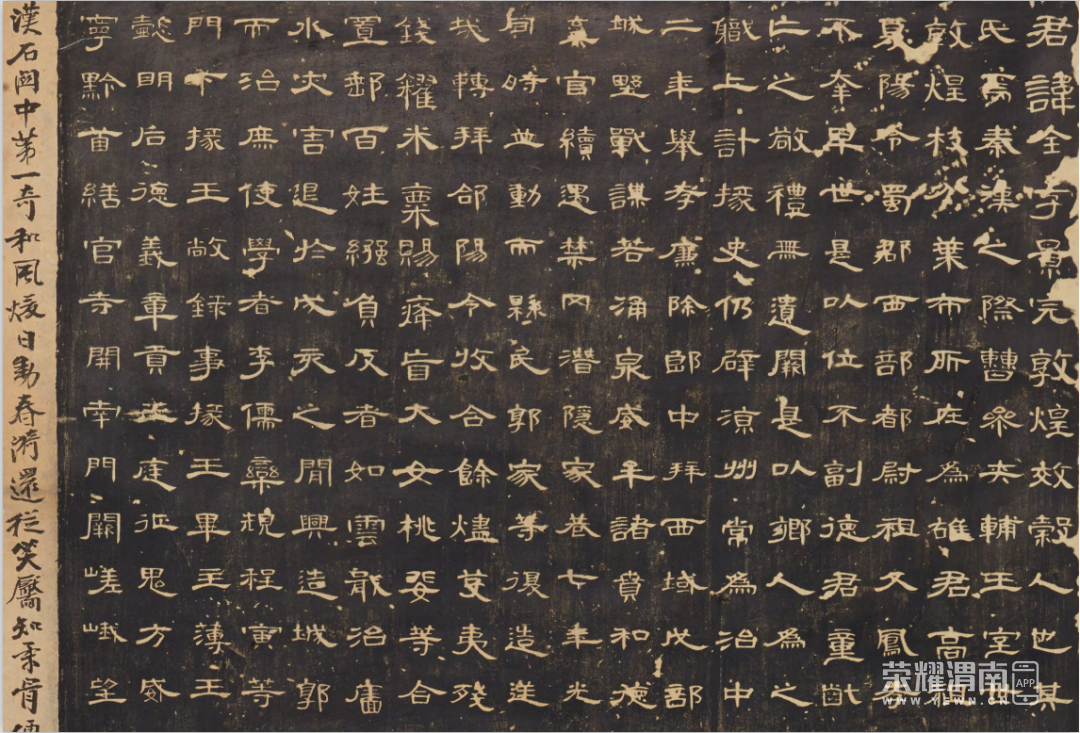 君諱全字景完敦煌效穀人也其
氏焉秦漢之際曹參夾輔王室世
敦煌枝分葉布所在為雄君高祖
夏陽令蜀郡西部都尉祖父鳳孝
不幸早世是以位不副德君童齔
亡之敬禮無遺闕是以鄉人為之
職上計掾史仍辟涼州常為治中
二年舉孝廉除郎中拜西域戊部
城野戰謀若涌泉威牟諸賁和德
棄官續遇禁冈潛隱家巷七年光
同時並動而縣民郭家等復造逆
哉轉拜郃陽令收合餘燼芟夷殘
錢糴米粟賜癃盲大女桃婓等合
置郵百姓繦負反者如雲戢治廧
水灾害退於戌亥之間興造城郭
而治庶使學者李儒欒規程寅等
門下掾王敞錄事掾王畢主薄王
懿明后德義章貢王庭征鬼方威
寧黔首繕官寺開南門闕嵯峨望
漢石國中第一奇和風煖日動春漪還從笑靨知柔骨
荣耀渭南 APP
WWW.YEWN.CN